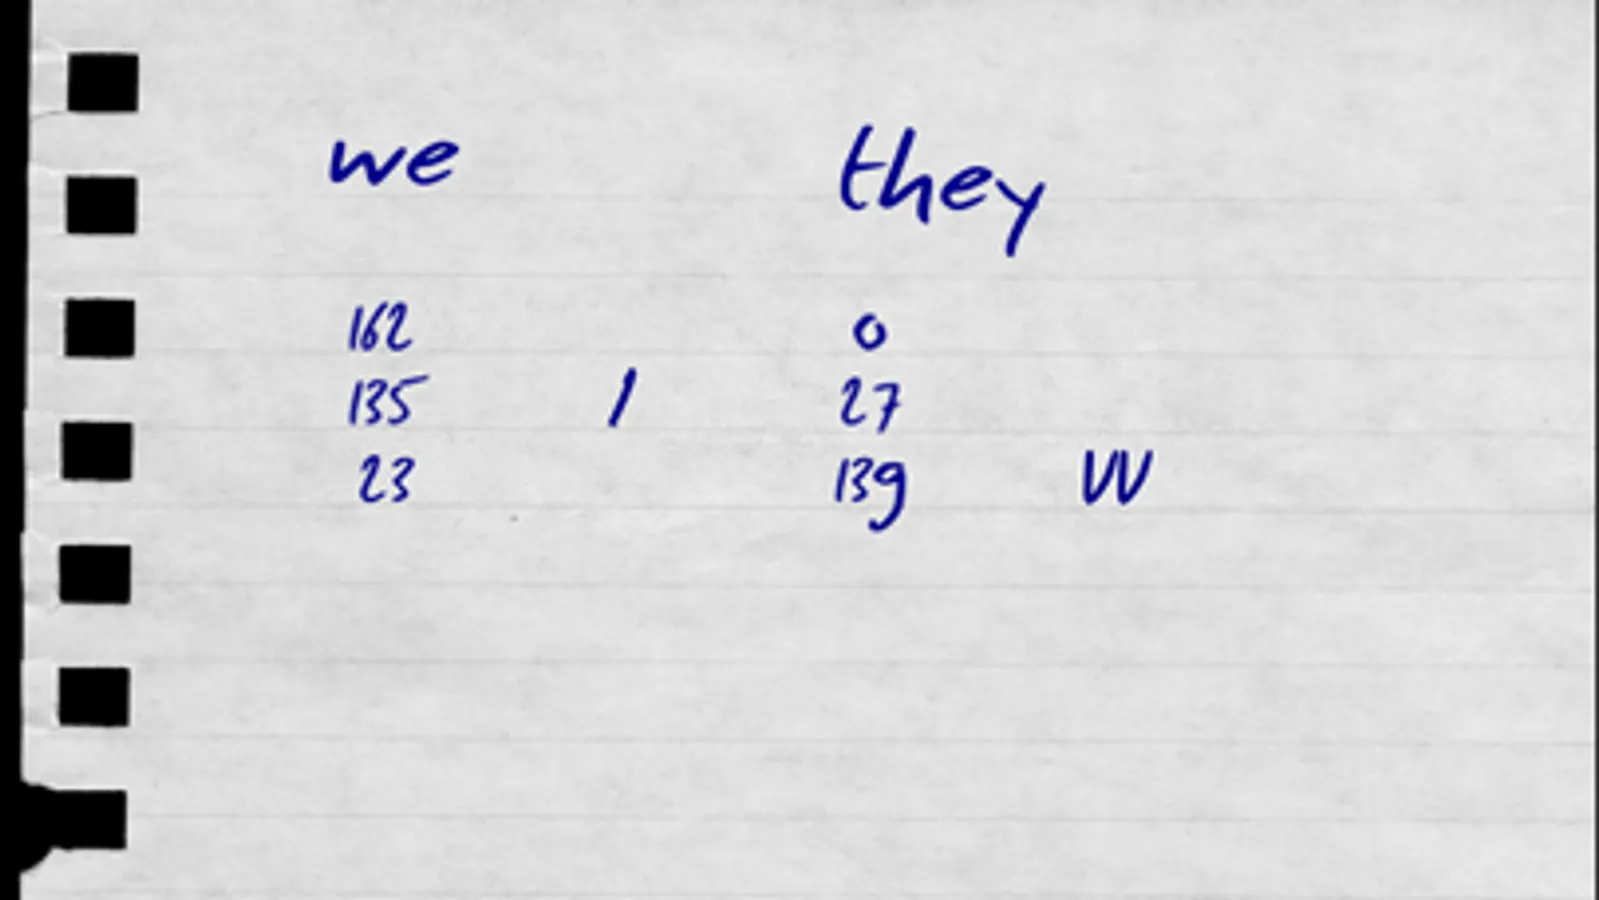 we they
162 0
135 / 27
23 139 VV